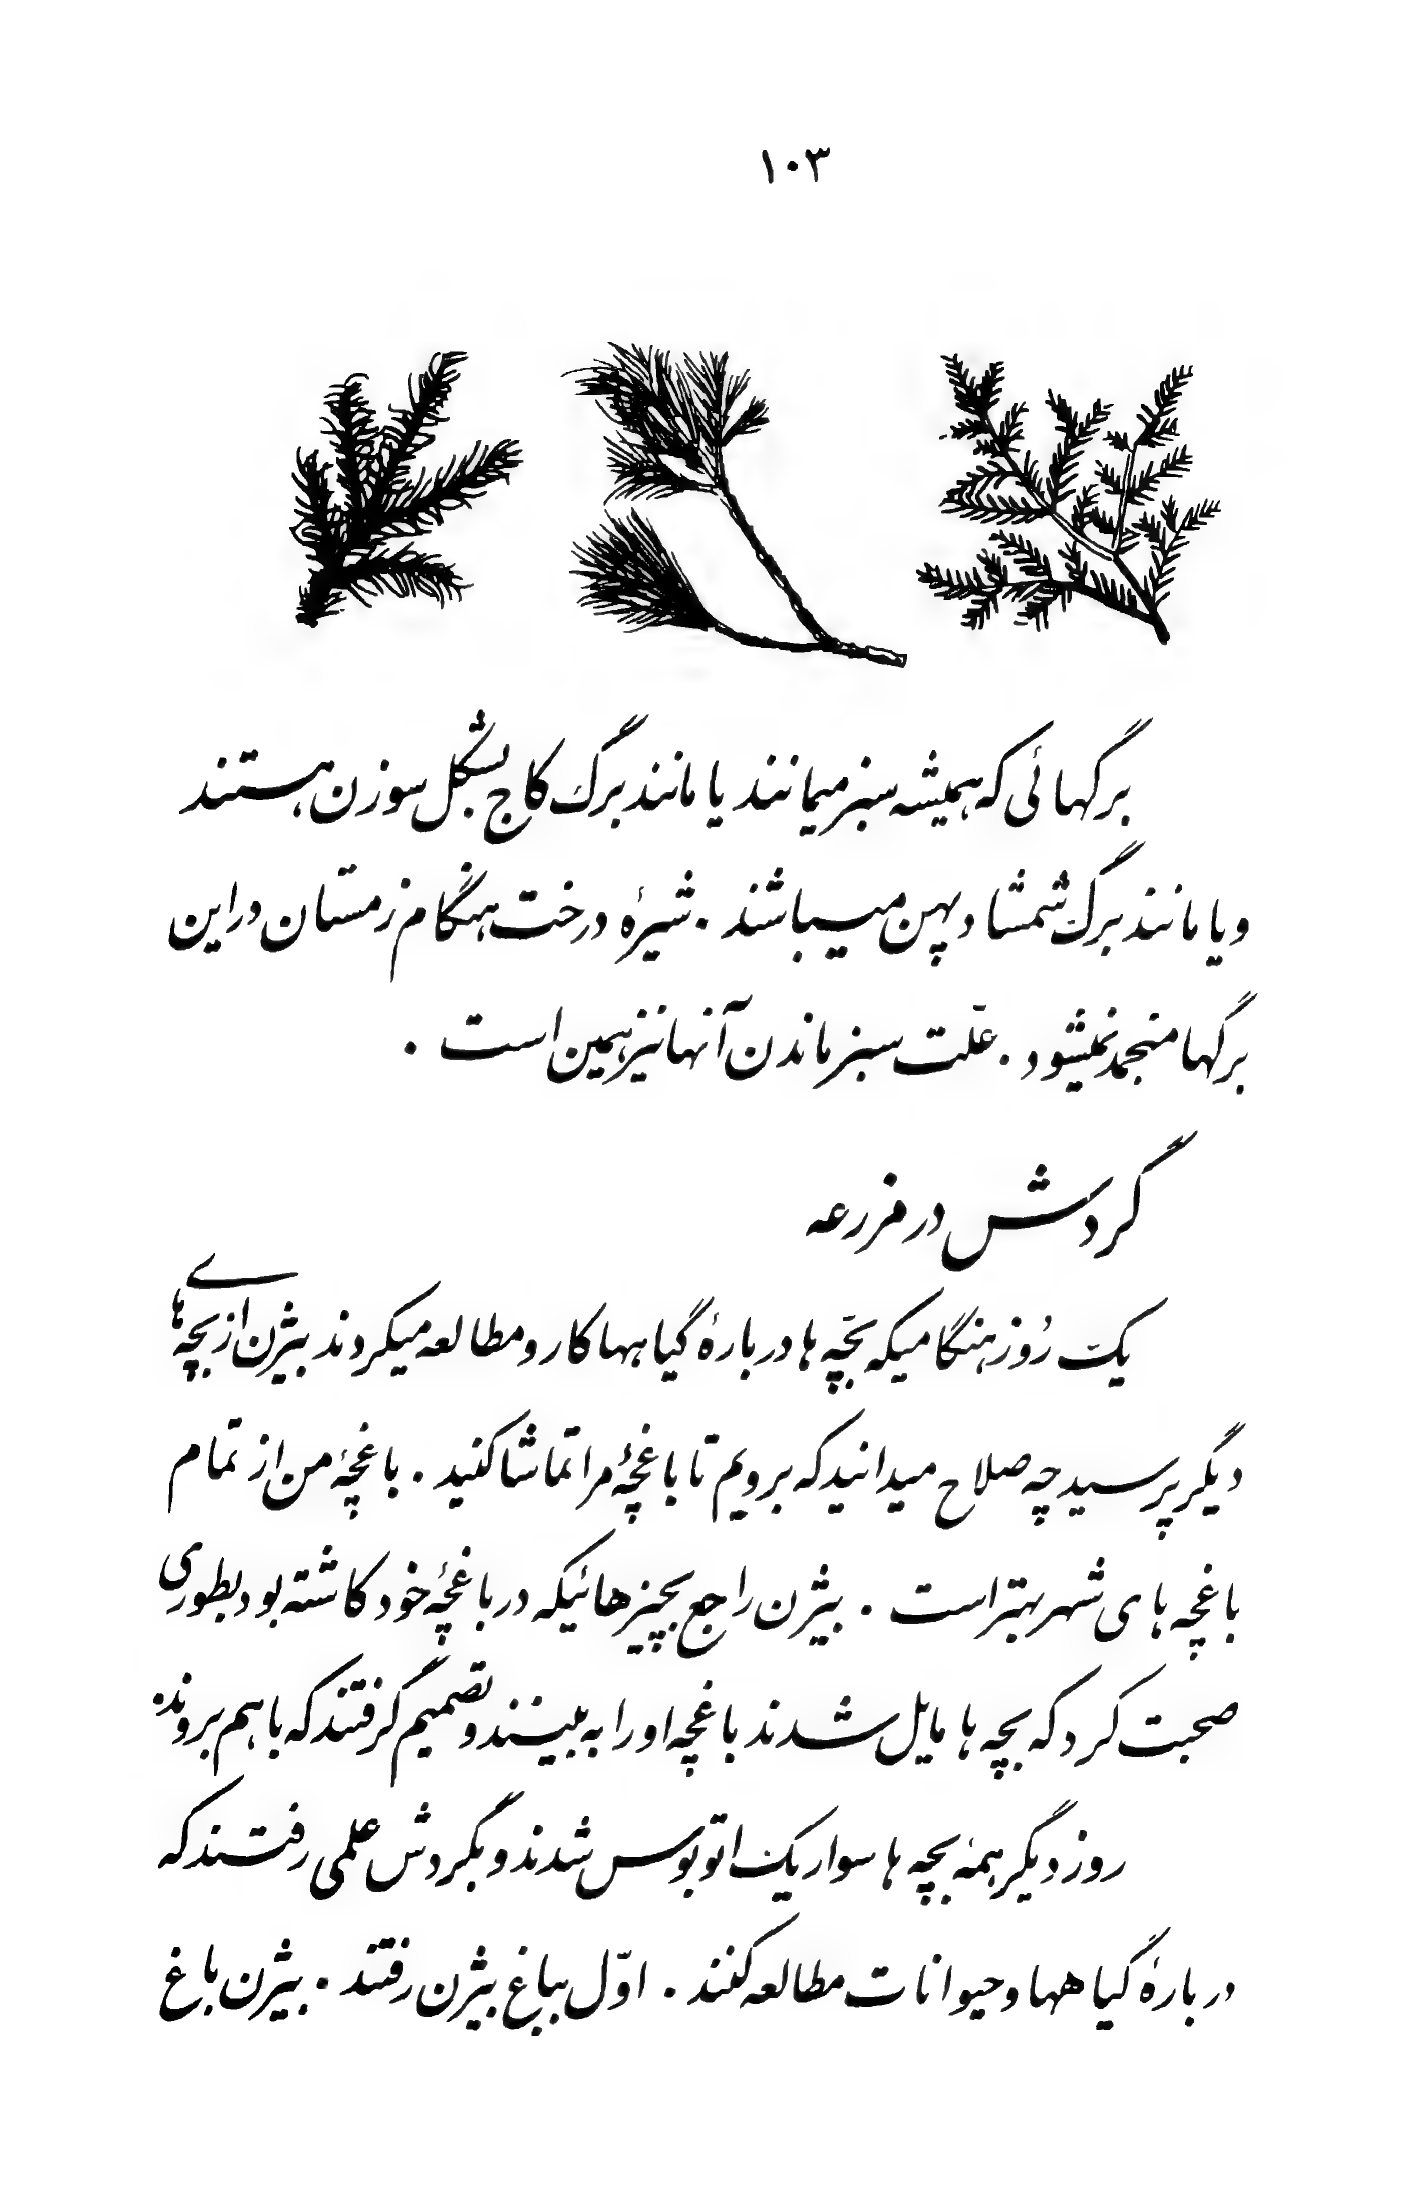 ۱۰۳
برگهائی که همیشه سبز میمانند یا مانند برگ کاج بشکل سوزن هستند
و یا مانند برگ شمشاد پهن میباشند . شیرهٔ درخت هنگام زمستان در این
برگها منجمد نمیشود . علّت سبز ماندن آنها نیز همین است .
گردش در مزرعه
یک رُوز هنگامیکه بچّه ها دربارهٔ گیاهها کار و مطالعه میکردند بیژن از بچه های
دیگر پرسید چه صلاح میدانید که برویم تا باغچهٔ مرا تماشا کنید . باغچهٔ من از تمام
باغچه های شهر بهتر است . بیژن راجع بچیزهائیکه در باغچهٔ خود کاشته بود بطوری
صحبت کرد که بچه ها مایل شدند باغچه او را به بینند و تصمیم گرفتند که با هم بروند.
روز دیگر همهٔ بچه ها سوار یک اتوبوس شدند و بگردش علمی رفتند که
دربارهٔ گیاهها و حیوانات مطالعه کنند . اوّل بباغ بیژن رفتند . بیژن باغ